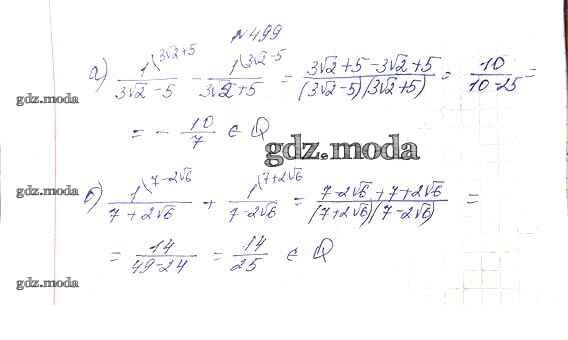 №499
а) 1\(3√2+5) / (3√2-5) - 1\(3√2-5) / (3√2+5) = (3√2+5-3√2+5) / ((3√2-5)(3√2+5)) = 10 / (10-25) =
gdz.moda
= - 10/7 ∈ Q
gdz.moda
б) 1\(7-2√6) / (7+2√6) + 1\(7+2√6) / (7-2√6) = (7-2√6+7+2√6) / ((7+2√6)(7-2√6)) =
= 14 / (49-24) = 14/25 ∈ Q
gdz.moda